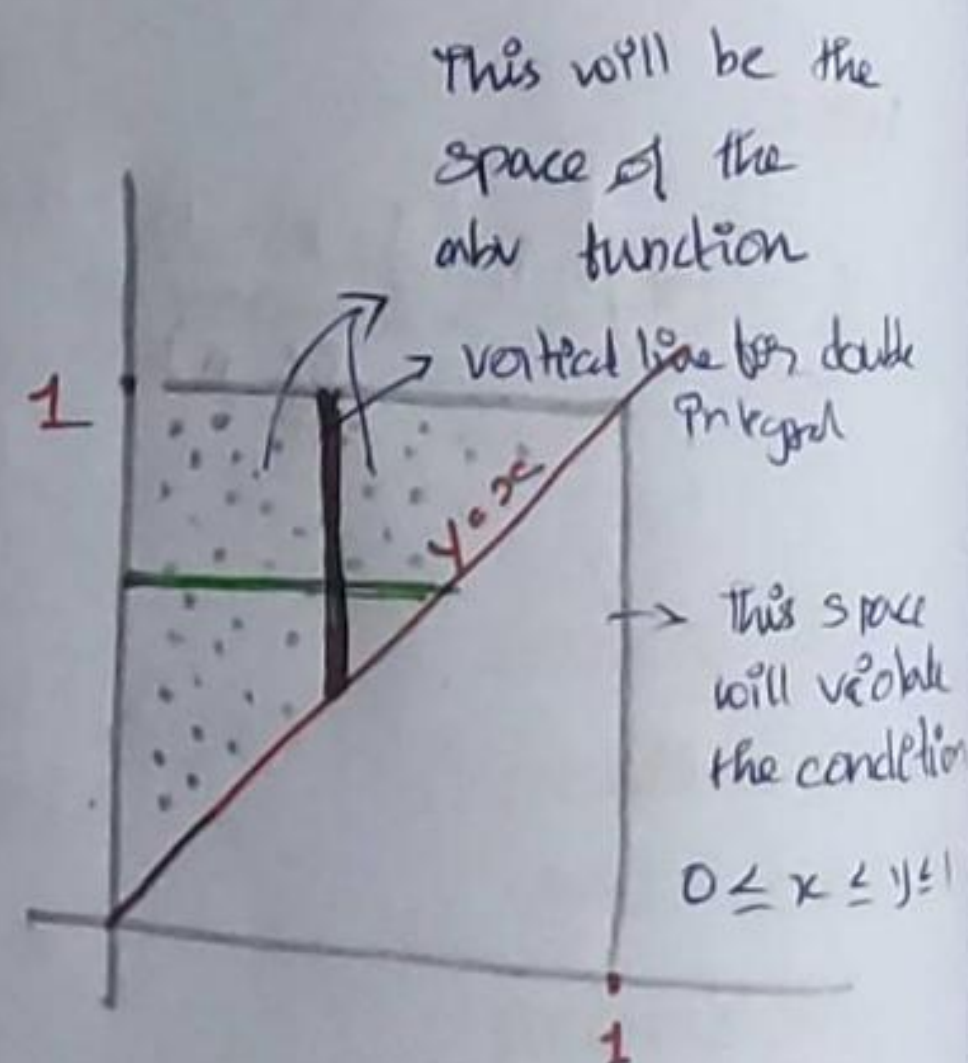 This will be the
space of the
abv function
vertical line for double
Integral
1
y = x
This space
will violate
the condition
0 ≤ x ≤ y ≤ 1
1